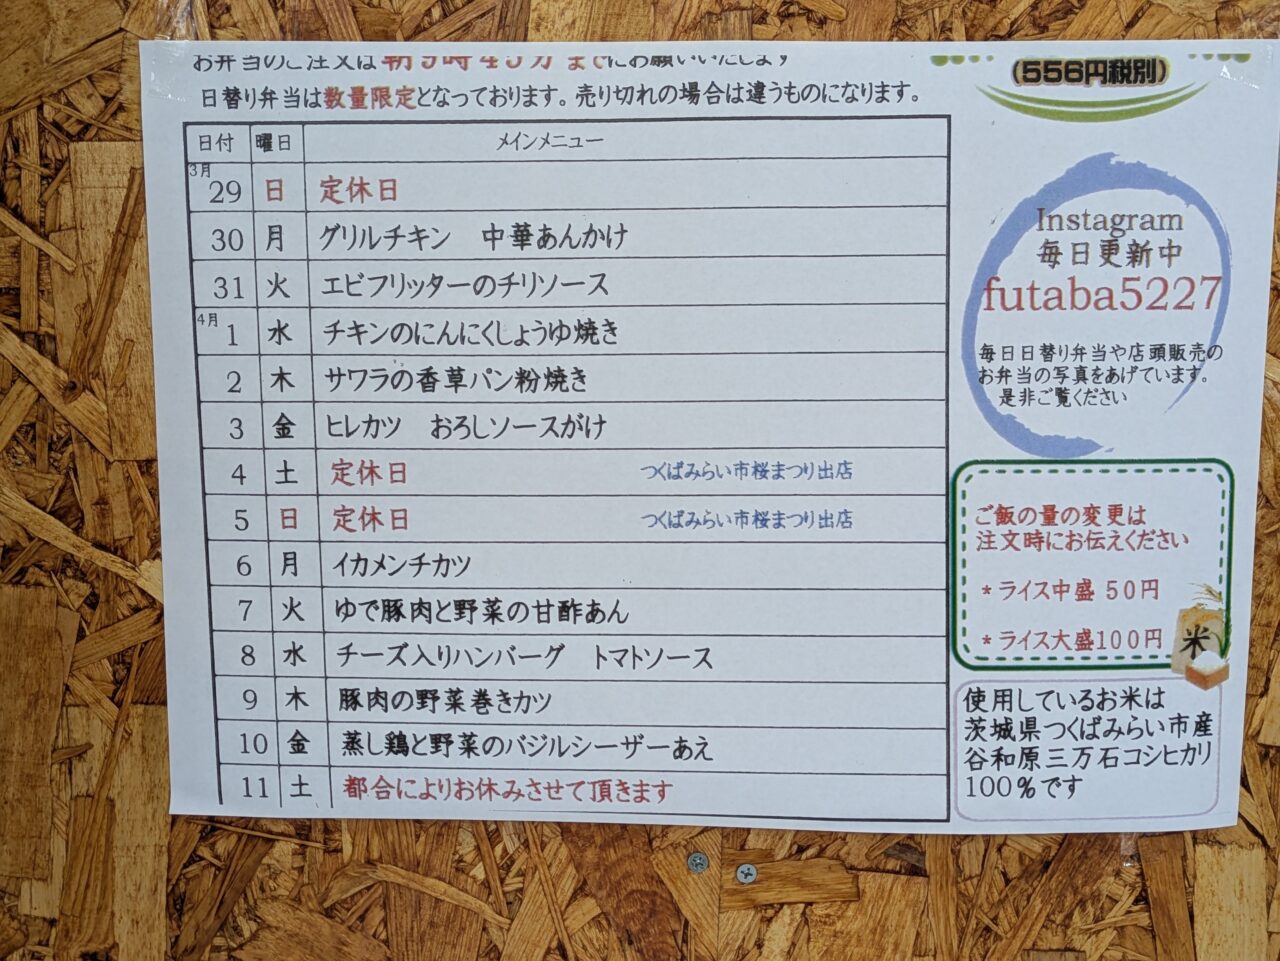 お弁当のご注文は朝9時45分までにお願いいたします
日替り弁当は数量限定となっております。売り切れの場合は違うものになります。
日付 曜日 メインメニュー
3月
29 日 定休日
30 月 グリルチキン 中華あんかけ
31 火 エビフリッターのチリソース
4月
1 水 チキンのにんにくしょうゆ焼き
2 木 サワラの香草パン粉焼き
3 金 ヒレカツ おろしソースがけ
4 土 定休日 つくばみらい市桜まつり出店
5 日 定休日 つくばみらい市桜まつり出店
6 月 イカメンチカツ
7 火 ゆで豚肉と野菜の甘酢あん
8 水 チーズ入りハンバーグ トマトソース
9 木 豚肉の野菜巻きカツ
10 金 蒸し鶏と野菜のバジルシーザーあえ
11 土 都合によりお休みさせて頂きます
(556円税別)
Instagram
毎日更新中
futaba5227
毎日日替り弁当や店頭販売の
お弁当の写真をあげています。
是非ご覧ください
ご飯の量の変更は
注文時にお伝えください
*ライス中盛 50円
*ライス大盛100円
米
使用しているお米は
茨城県つくばみらい市産
谷和原三万石コシヒカリ
100%です